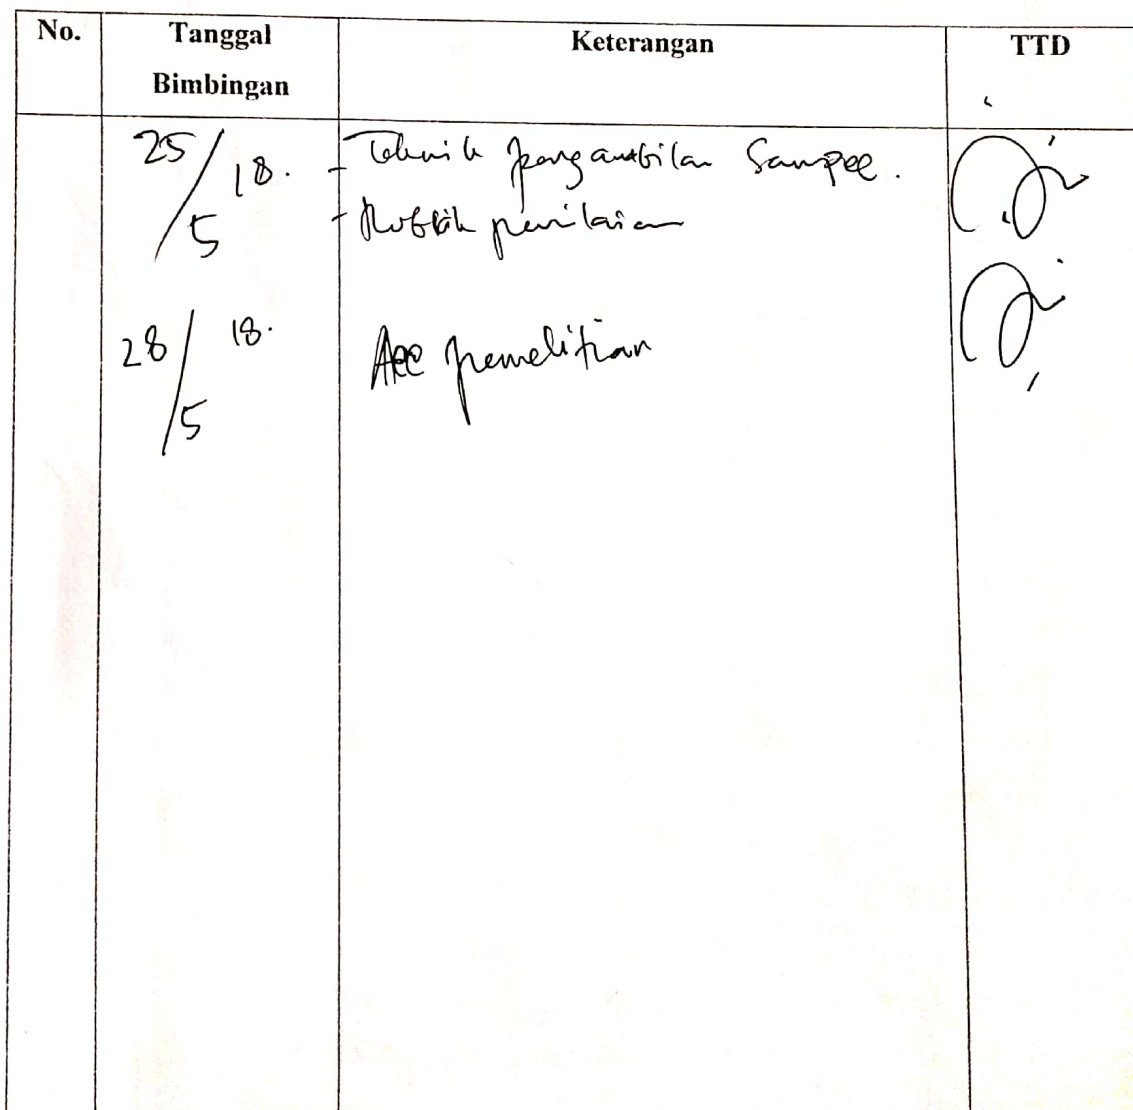 No. Tanggal Bimbingan Keterangan TTD
25/5 18. - Teknik pengambilan Sampel.
- Rubrik penilaian
28/5 18. Acc penelitian